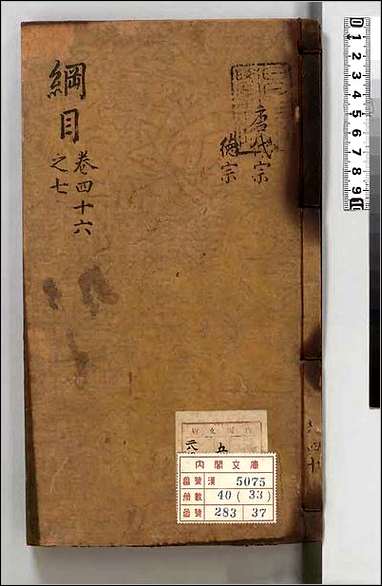 綱目
卷四十六
之七
唐代宗
德宗
內閣文庫
番號 漢 5075
冊數 40 (33)
函號 283 37
0 1 2 3 4 5 6 7 8 9 10